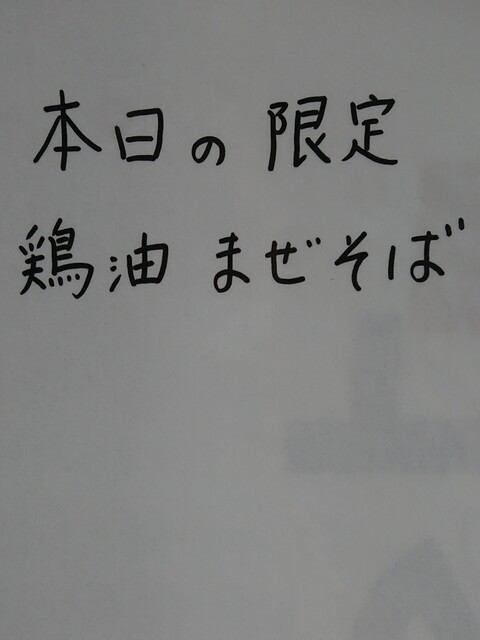 本日の 限定
鶏油 まぜそば